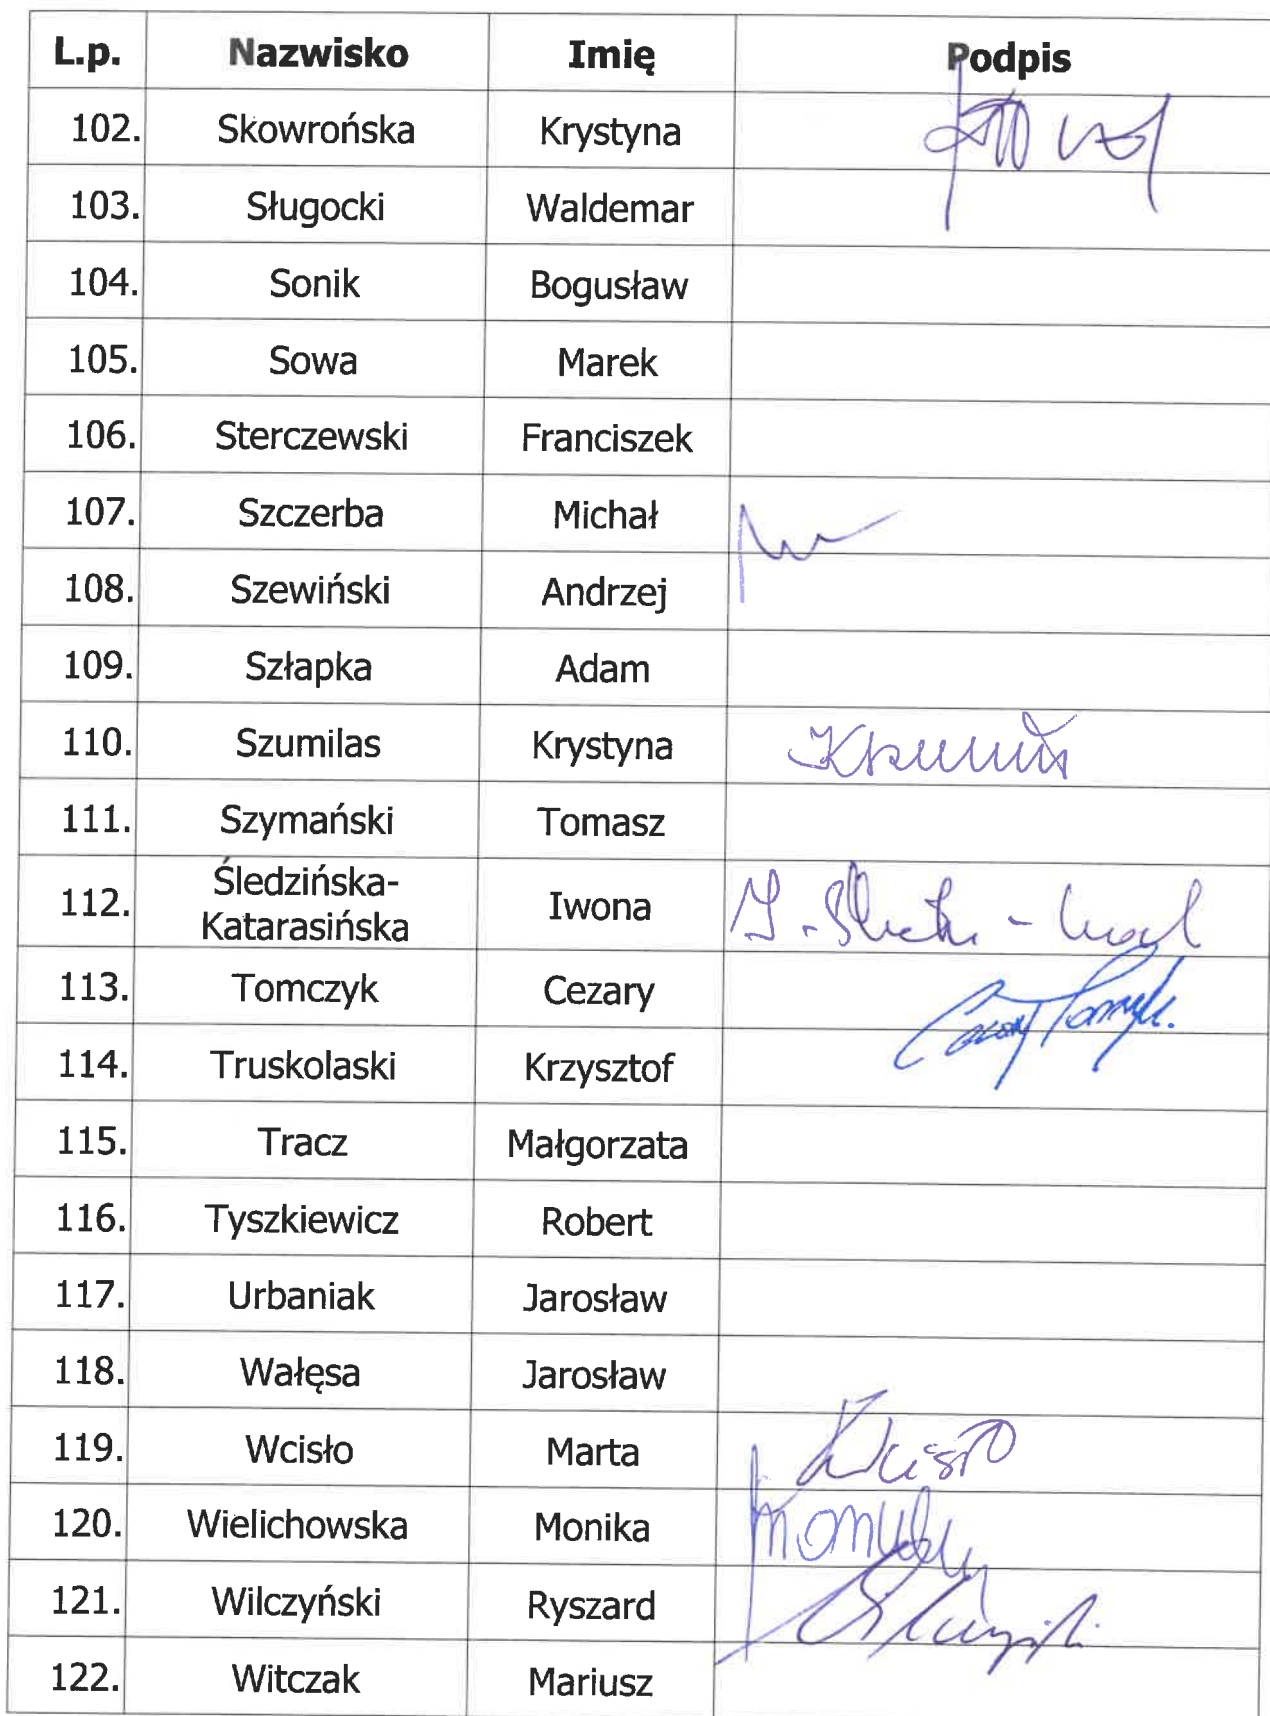 L.p. Nazwisko Imię Podpis
102. Skowrońska Krystyna
103. Sługocki Waldemar
104. Sonik Bogusław
105. Sowa Marek
106. Sterczewski Franciszek
107. Szczerba Michał
108. Szewiński Andrzej
109. Szłapka Adam
110. Szumilas Krystyna
111. Szymański Tomasz
112. Śledzińska-
Katarasińska Iwona
113. Tomczyk Cezary Cezary Tomczyk.
114. Truskolaski Krzysztof
115. Tracz Małgorzata
116. Tyszkiewicz Robert
117. Urbaniak Jarosław
118. Wałęsa Jarosław
119. Wcisło Marta Wcisło
120. Wielichowska Monika
121. Wilczyński Ryszard
122. Witczak Mariusz